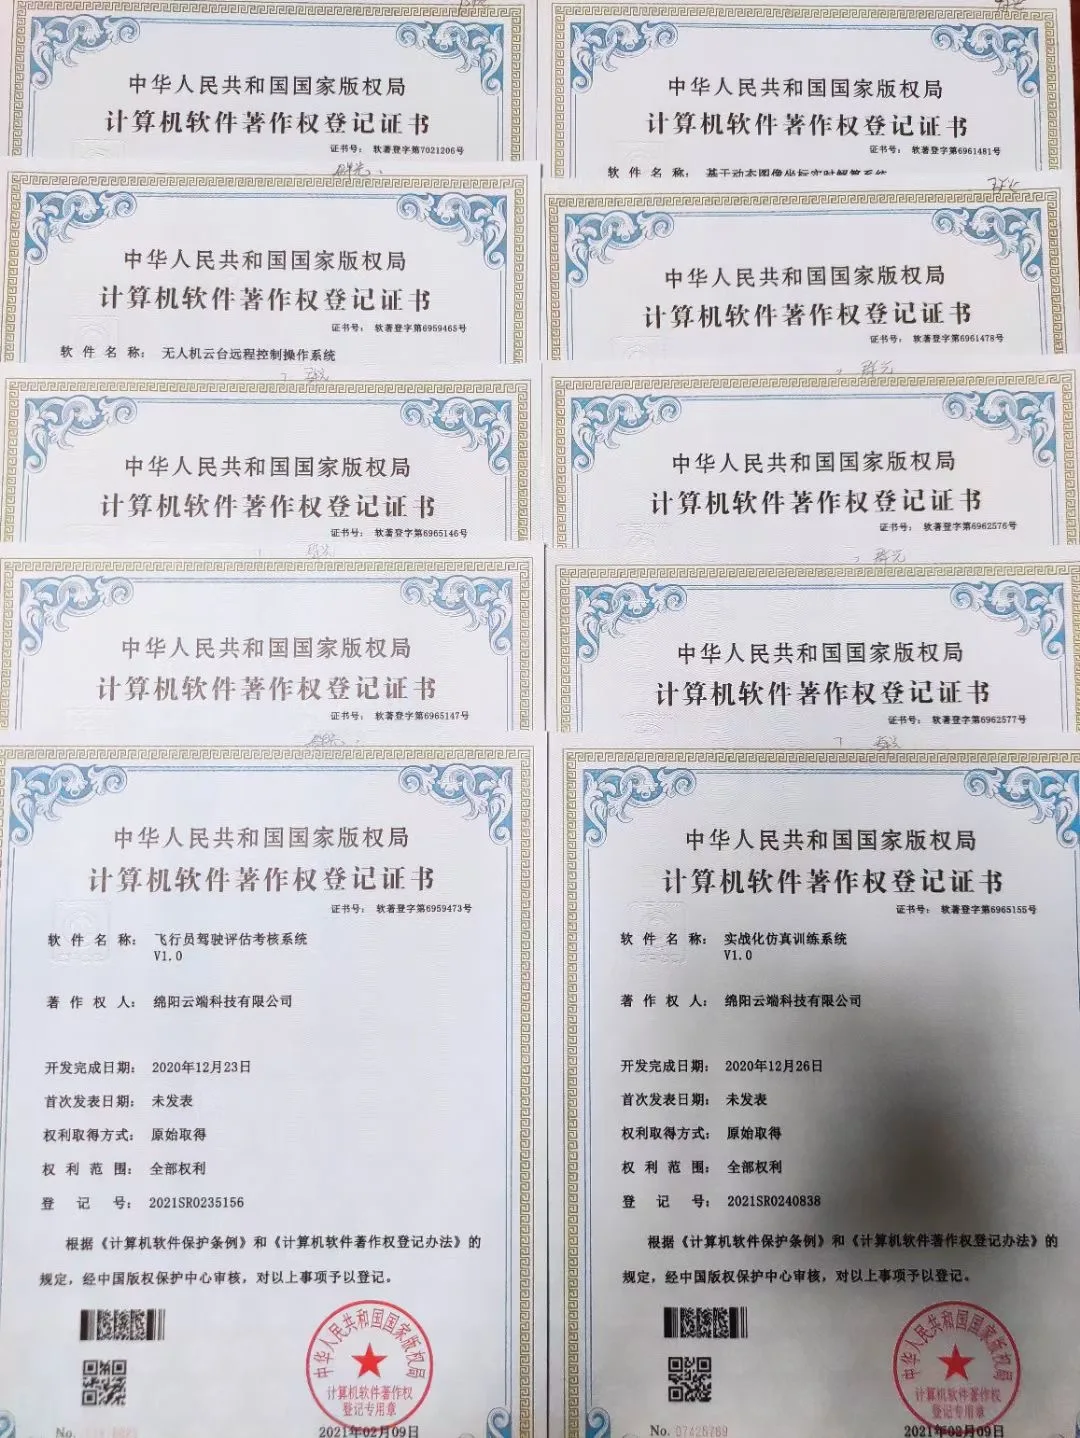 中华人民共和国国家版权局
计算机软件著作权登记证书
证书号： 软著登字第7021206号
中华人民共和国国家版权局
计算机软件著作权登记证书
证书号： 软著登字第6961481号
软件名称： 基于动态图像坐标实时解算系统
中华人民共和国国家版权局
计算机软件著作权登记证书
证书号： 软著登字第6959465号
软件名称： 无人机云台远程控制操作系统
中华人民共和国国家版权局
计算机软件著作权登记证书
证书号： 软著登字第6961478号
中华人民共和国国家版权局
计算机软件著作权登记证书
证书号： 软著登字第6965146号
中华人民共和国国家版权局
计算机软件著作权登记证书
证书号： 软著登字第6962576号
中华人民共和国国家版权局
计算机软件著作权登记证书
证书号： 软著登字第6965147号
中华人民共和国国家版权局
计算机软件著作权登记证书
证书号： 软著登字第6962577号
中华人民共和国国家版权局
计算机软件著作权登记证书
证书号： 软著登字第6959473号
软件名称： 飞行员驾驶评估考核系统
V1.0
著作权人： 绵阳云端科技有限公司
开发完成日期： 2020年12月23日
首次发表日期： 未发表
权利取得方式： 原始取得
权利范围： 全部权利
登记号： 2021SR0235156
根据《计算机软件保护条例》和《计算机软件著作权登记办法》的
规定，经中国版权保护中心审核，对以上事项予以登记。
中华人民共和国国家版权局
计算机软件著作权
登记专用章
No.
2021年02月09日
中华人民共和国国家版权局
计算机软件著作权登记证书
证书号： 软著登字第6965155号
软件名称： 实战化仿真训练系统
V1.0
著作权人： 绵阳云端科技有限公司
开发完成日期： 2020年12月26日
首次发表日期： 未发表
权利取得方式： 原始取得
权利范围： 全部权利
登记号： 2021SR0240838
根据《计算机软件保护条例》和《计算机软件著作权登记办法》的
规定，经中国版权保护中心审核，对以上事项予以登记。
中华人民共和国国家版权局
计算机软件著作权
登记专用章
No. 07426769
2021年02月09日